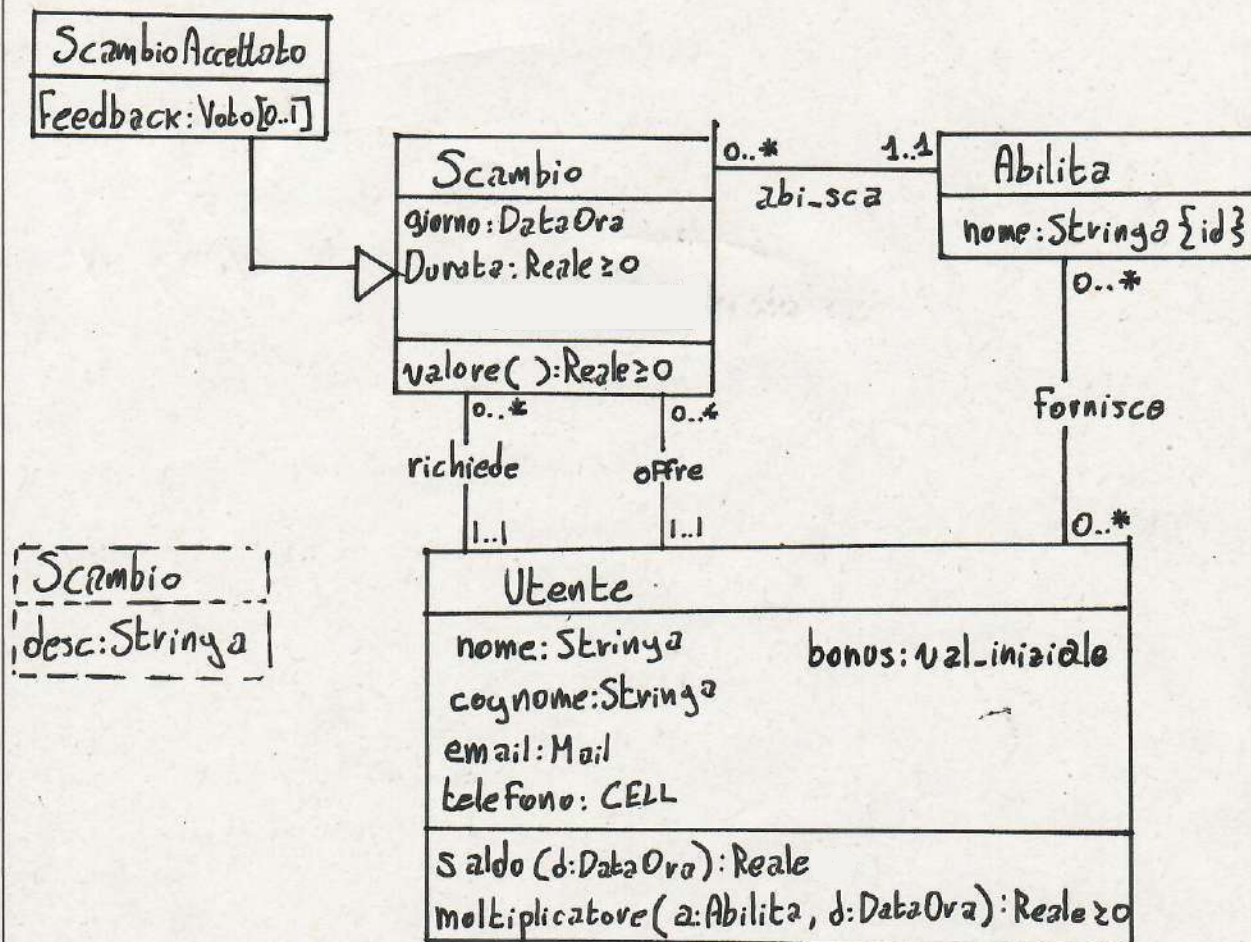 ScambioAccettato
Feedback: Voto[0..1]
Scambio
giorno: DataOra
Durata: Reale ≥ 0
valore( ): Reale ≥ 0
0..*
1..1
abi_sca
Abilita
nome: Stringa {id}
0..*
Fornisce
0..*
0..*
0..*
richiede
offre
1..1
1..1
Scambio
desc: Stringa
Utente
nome: Stringa
bonus: val_iniziale
cognome: Stringa
email: Mail
telefono: CELL
saldo (d: DataOra): Reale
moltiplicatore (a: Abilita, d: DataOra): Reale ≥ 0